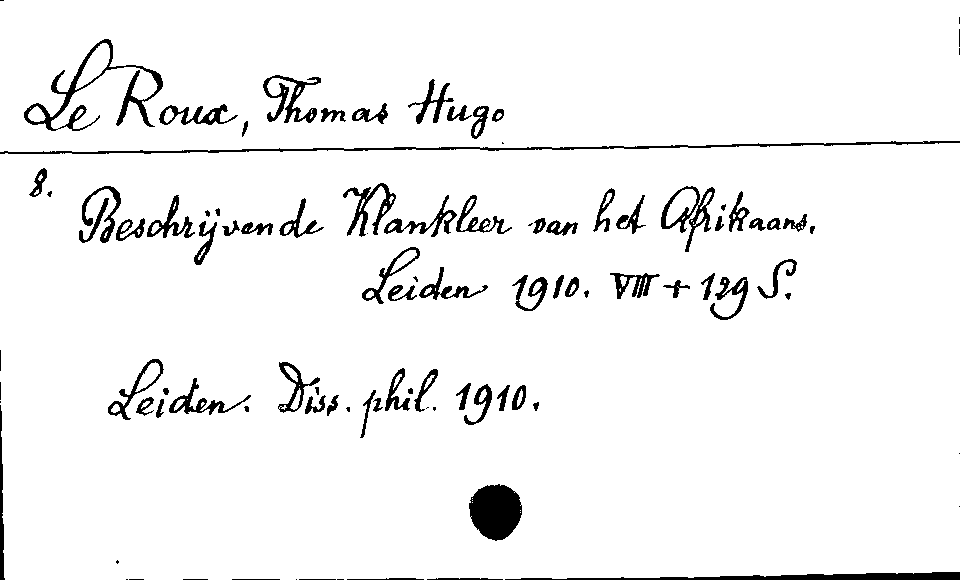 Le Roux, Thomas Hugo
8.
Beschrijvende Klankleer van het Afrikaans.
Leiden 1910. VIII + 129 S.
Leiden. Diss. phil. 1910.